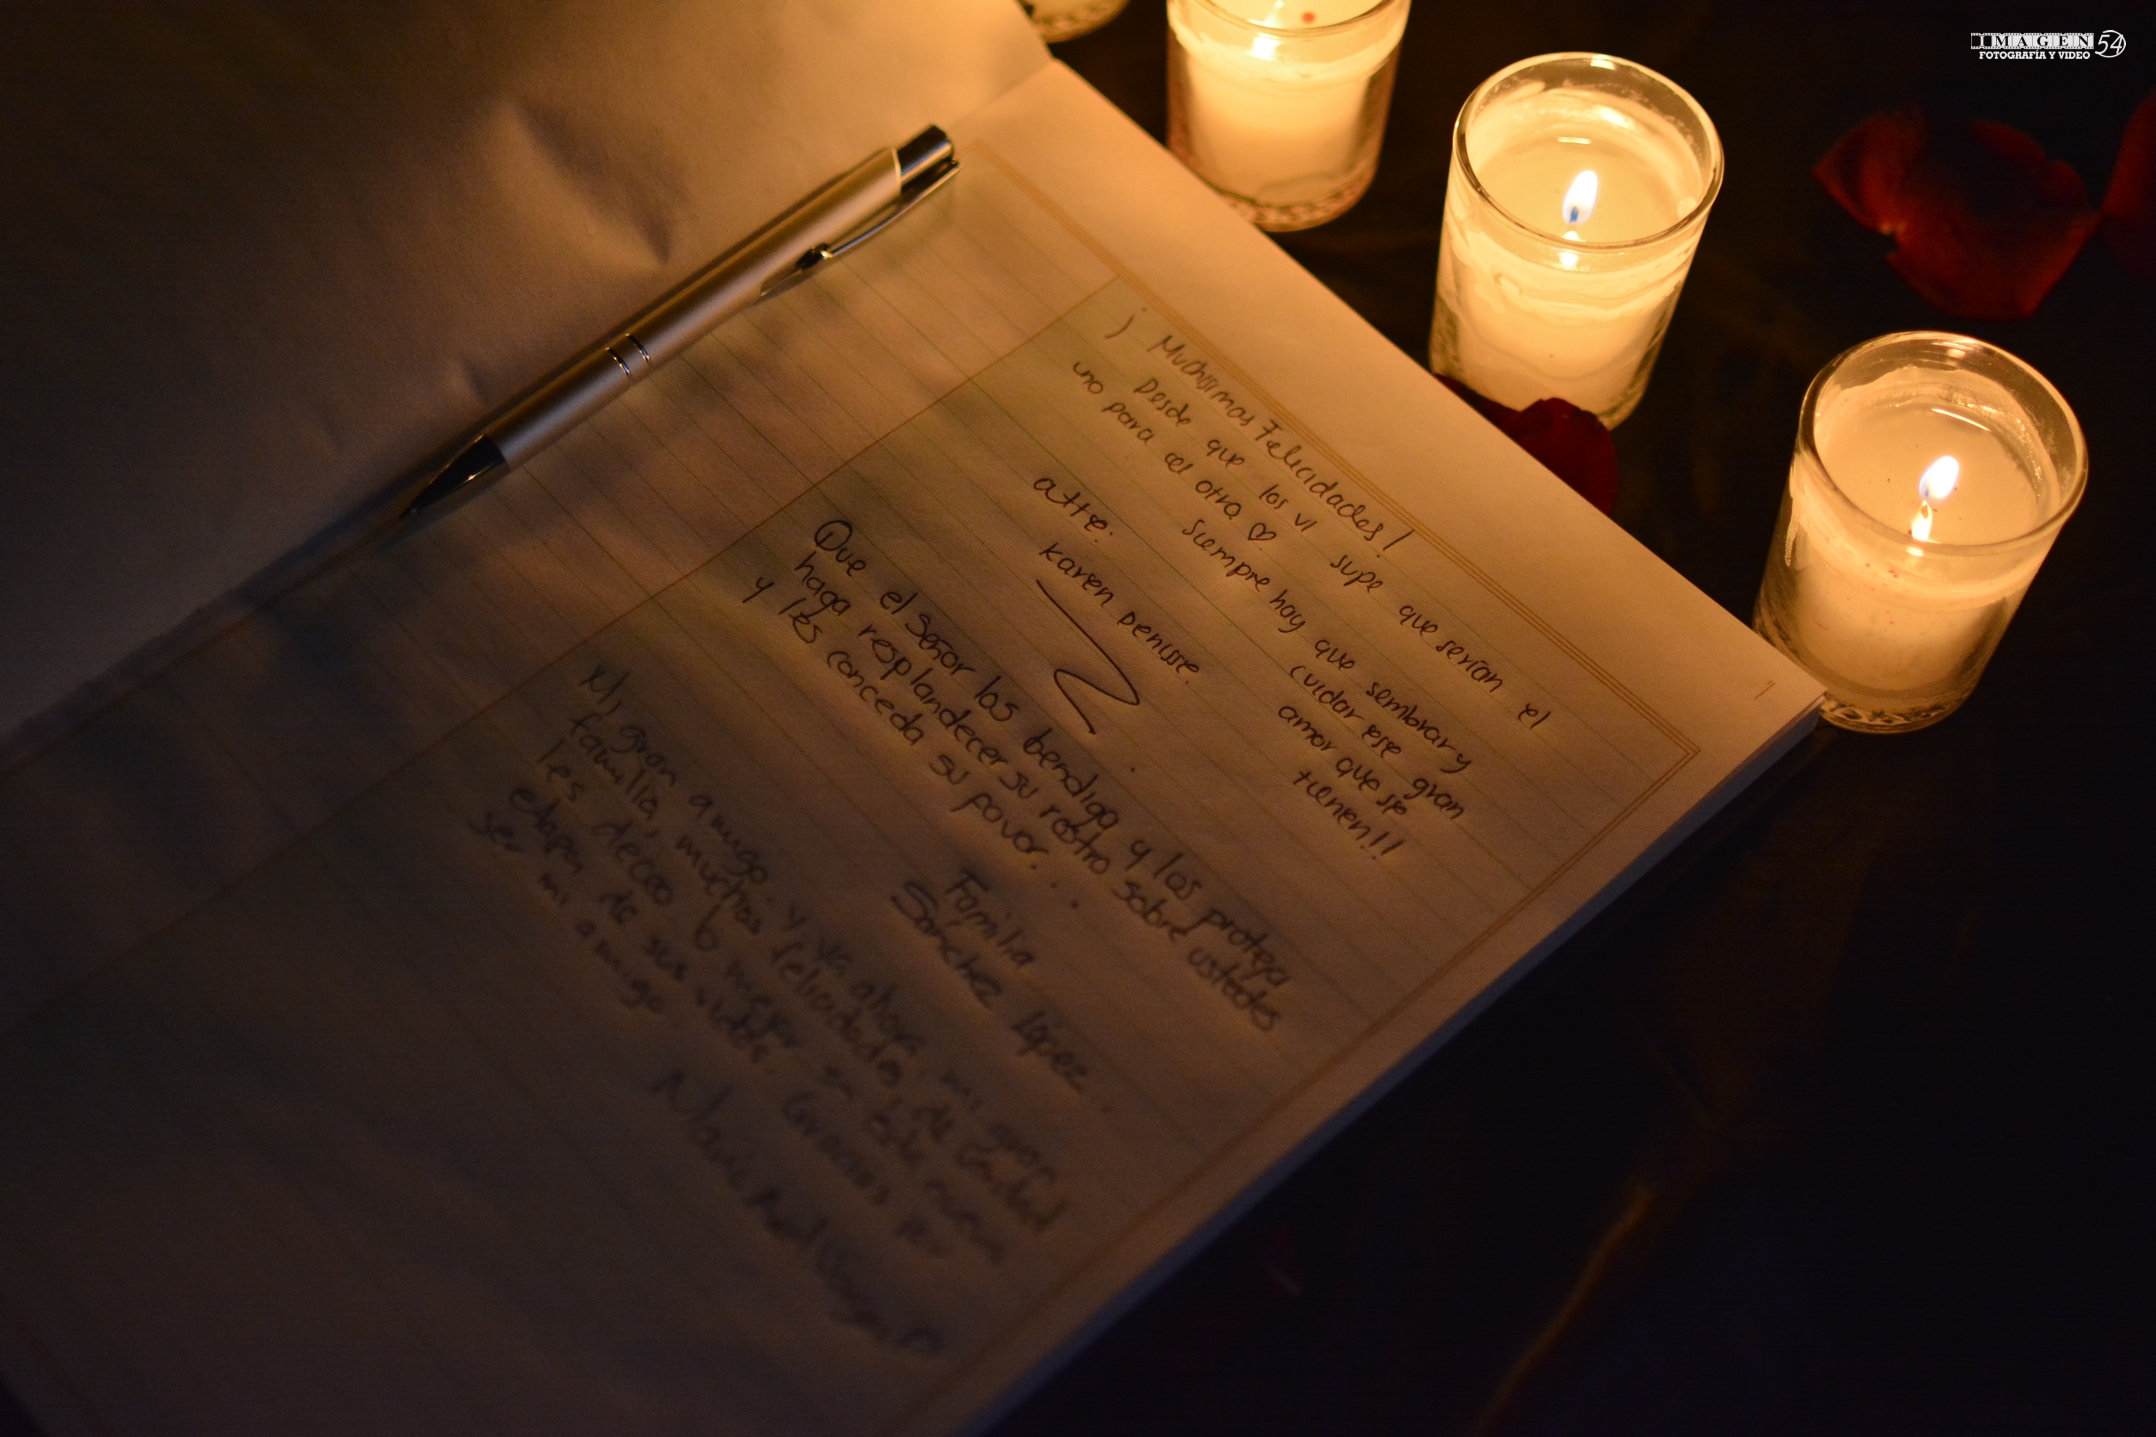 IMAGEN 54
FOTOGRAFÍA Y VIDEO
1
¡Muchisimas Felicidades!
Desde que los vi supe que serian el
uno para el otro ♡
Siempre hay que sembrar y
cuidar ese gran
amor que se
tienen!!
atte:
Karen Denisse.
Que el Señor los bendiga y los proteja
haga resplandecer su rostro sobre ustedes
y les conceda su favor...
Familia
Sanchez López..
Mi gran amigo y ya ahora, mi
familia, muchas felicidades, de
les deceo lo mejor en esta nueva
etapa de sus vidas. Gracias por
ser mi amigo